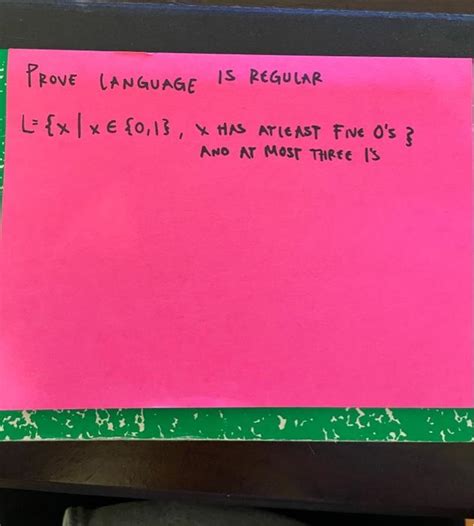 PROVE LANGUAGE IS REGULAR
L= {x | x ∈ {0,1}, x HAS ATLEAST FIVE 0'S }
AND AT MOST THREE 1'S